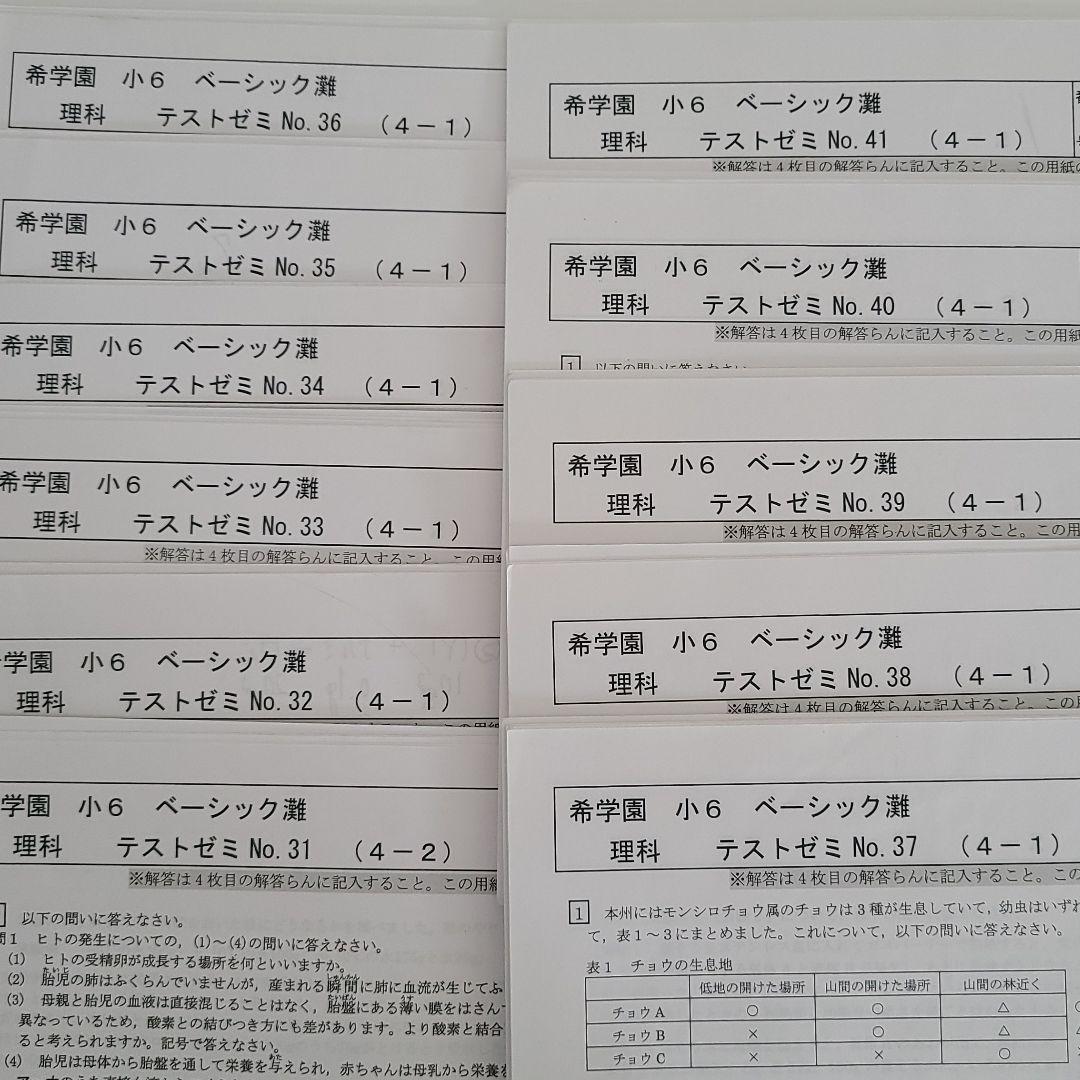 希学園 小6 ベーシック灘
理科 テストゼミ No.36 (4-1)
希学園 小6 ベーシック灘
理科 テストゼミ No.35 (4-1)
希学園 小6 ベーシック灘
理科 テストゼミ No.34 (4-1)
希学園 小6 ベーシック灘
理科 テストゼミ No.33 (4-1)
※解答は4枚目の解答らんに記入すること。この用紙
希学園 小6 ベーシック灘
理科 テストゼミ No.32 (4-1)
学園 小6 ベーシック灘
理科 テストゼミ No.31 (4-2)
※解答は4枚目の解答らんに記入すること。この用紙
以下の問いに答えなさい。
問1 ヒトの発生についての，(1)～(4)の問いに答えなさい。
(1) ヒトの受精卵が成長する場所を何といいますか。
(2) 胎児の肺はふくらんでいませんが，産まれる瞬間に肺に血流が生じてふ
(3) 母親と胎児の血液は直接混じることはなく，胎盤にある薄い膜をはさんで
異なっているため，酸素との結びつき方にも差があります。より酸素と結合
ると考えられますか。記号で答えなさい。
(4) 胎児は母体から胎盤を通して栄養を与えられ，赤ちゃんは母乳から栄養を
希学園 小6 ベーシック灘
理科 テストゼミ No.41 (4-1)
※解答は4枚目の解答らんに記入すること。この用紙の
希学園 小6 ベーシック灘
理科 テストゼミ No.40 (4-1)
※解答は4枚目の解答らんに記入すること。この用紙
1 以下の問いに答えなさい。
希学園 小6 ベーシック灘
理科 テストゼミ No.39 (4-1)
※解答は4枚目の解答らんに記入すること。この用
希学園 小6 ベーシック灘
理科 テストゼミ No.38 (4-1)
※解答は4枚目の解答らんに記入すること。この用
希学園 小6 ベーシック灘
理科 テストゼミ No.37 (4-1)
※解答は4枚目の解答らんに記入すること。この
1 本州にはモンシロチョウ属のチョウは3種が生息していて，幼虫はいずれ
て，表1～3にまとめました。これについて，以下の問いに答えなさい。
表1 チョウの生息地
低地の開けた場所 山間の開けた場所 山間の林近く
チョウA ○ ○ △
チョウB × ○ △
チョウC × × ○